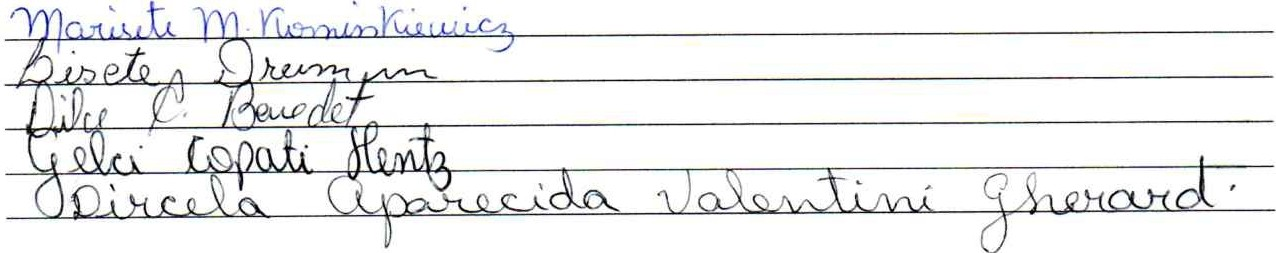 Marisete M. Kominkiewicz
Lisete Drumm
Dilce C. Benedet
Gelci Copati Hentz
Dircela Aparecida Valentini Gherard